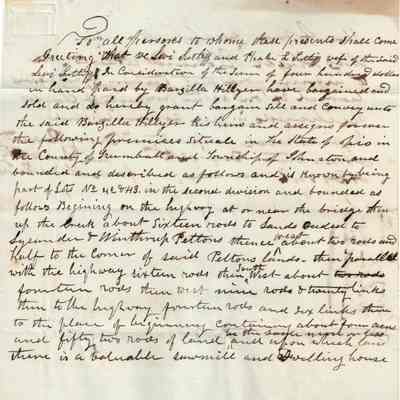 To all persons to whome these presents shall come
Greeting that we Levi Sutliff and Phebe L Sutliff wife of the said
Levi Sutliff In Consideration of the Sum of four hundred dollars
in hand paid by Barzilla Hillyer have bargained and
sold and do hereby grant bargain sell and convey unto
the said Barzilla Hillyer his heirs and assigns forever
the following premises situate in the State of Ohio in
the County of Trumbull and Township of Johnston and
bounded and described as follows and is known by being
part of Lots No 42 & 43. in the second division and bounded as
follows Begining on the highway at or near the bridge then
up the Creek about Sixteen rods to Lands owded to
Lysander & Winthrop Peltons thence west about two rods and
half to the Corner of said Peltons Lands. then parallel
with the highway sixteen rods then South West about two rods
fourteen rods then west nine rods & twenty links
then to the highway fourteen rods and six links then
to the place of beginning containing about four acres
and fifty two rods of land and upon which land
there is a valuable sawmill and Dwelling house